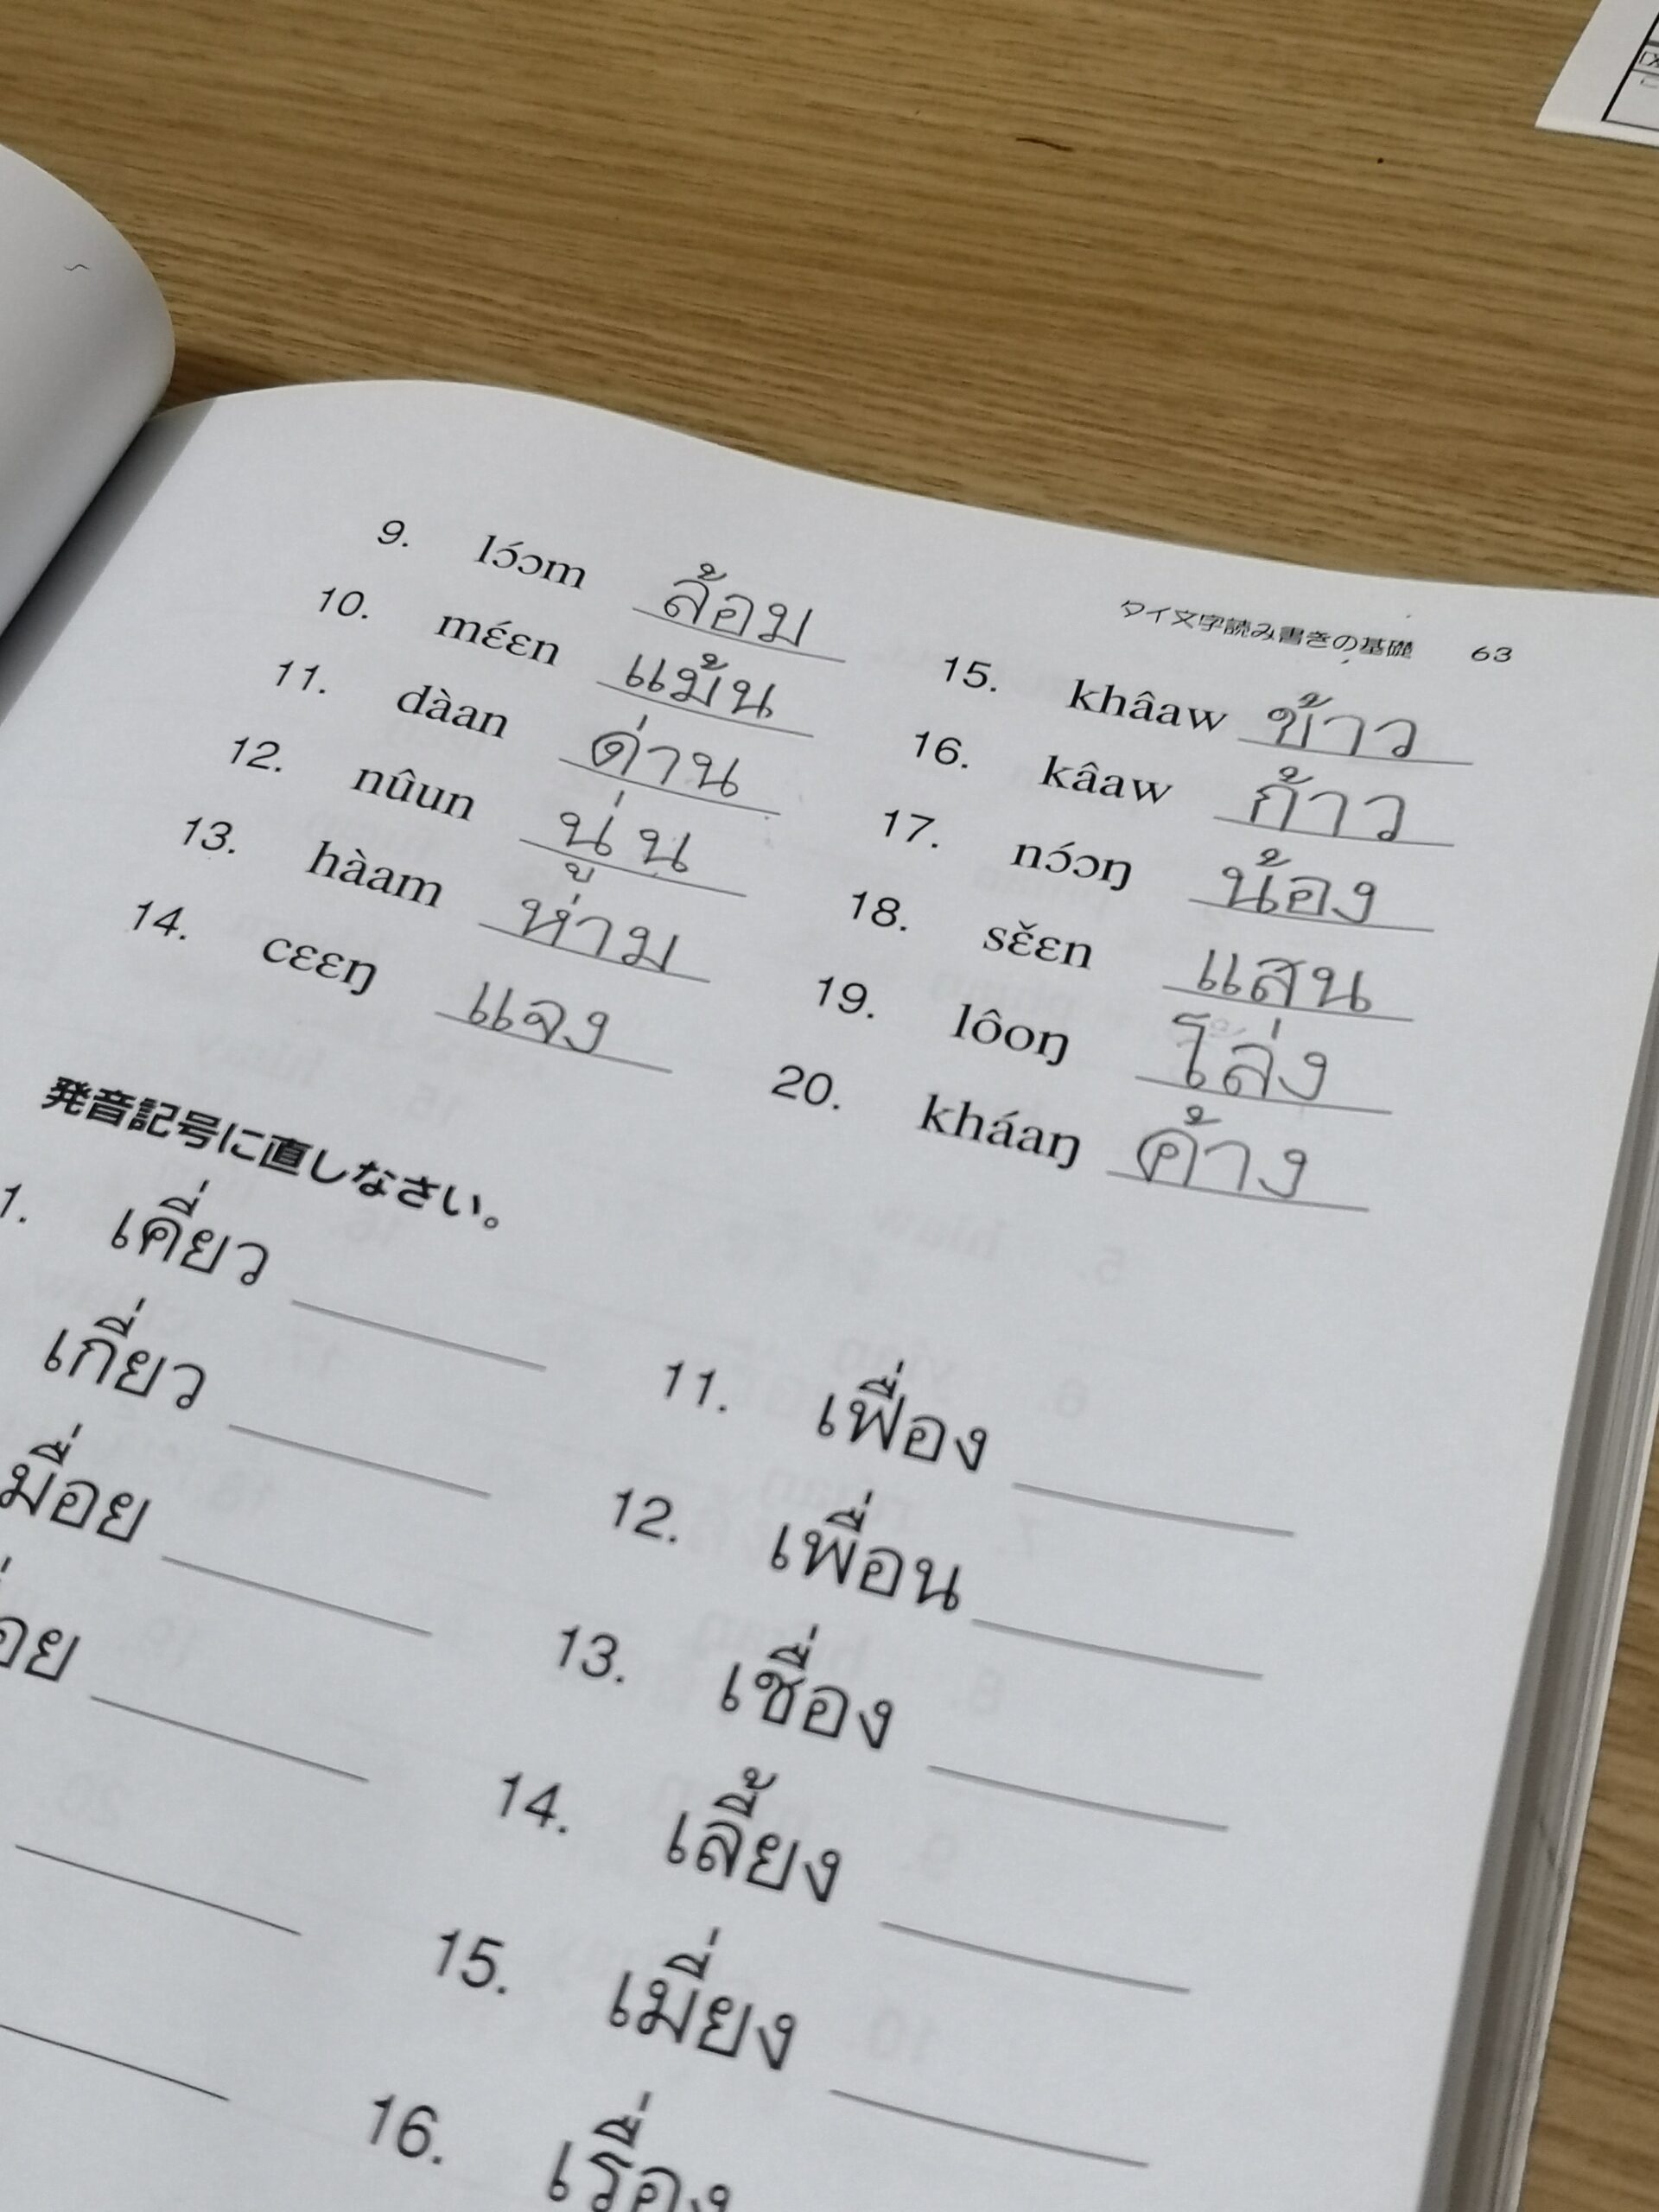 タイ文字読み書きの基礎 63
9. lɔ́ɔm ล้อม
10. mɛ́ɛn แม้น
11. dàan ด่าน
12. nûun นู่น
13. hàam ห่าม
14. cɛɛŋ แจง
15. khâaw ข้าว
16. kâaw ก้าว
17. nɔ́ɔŋ น้อง
18. sɛ̌ɛn แสน
19. lôoŋ โล่ง
20. kháaŋ ค้าง
発音記号に直しなさい。
1. เคี่ยว
เกี่ยว
11. เฟื่อง
12. เพื่อน
13. เชื่อง
14. เลี้ยง
15. เมี่ยง
16.